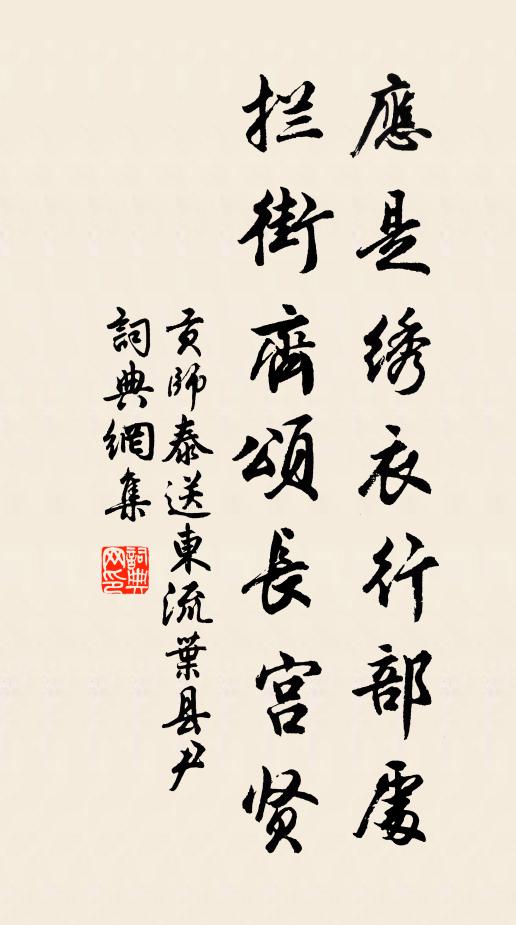 應是绣衣行部處
拦街齊頌長宫贤
贡師泰送東流葉县尹
詞典網集
詞典網印